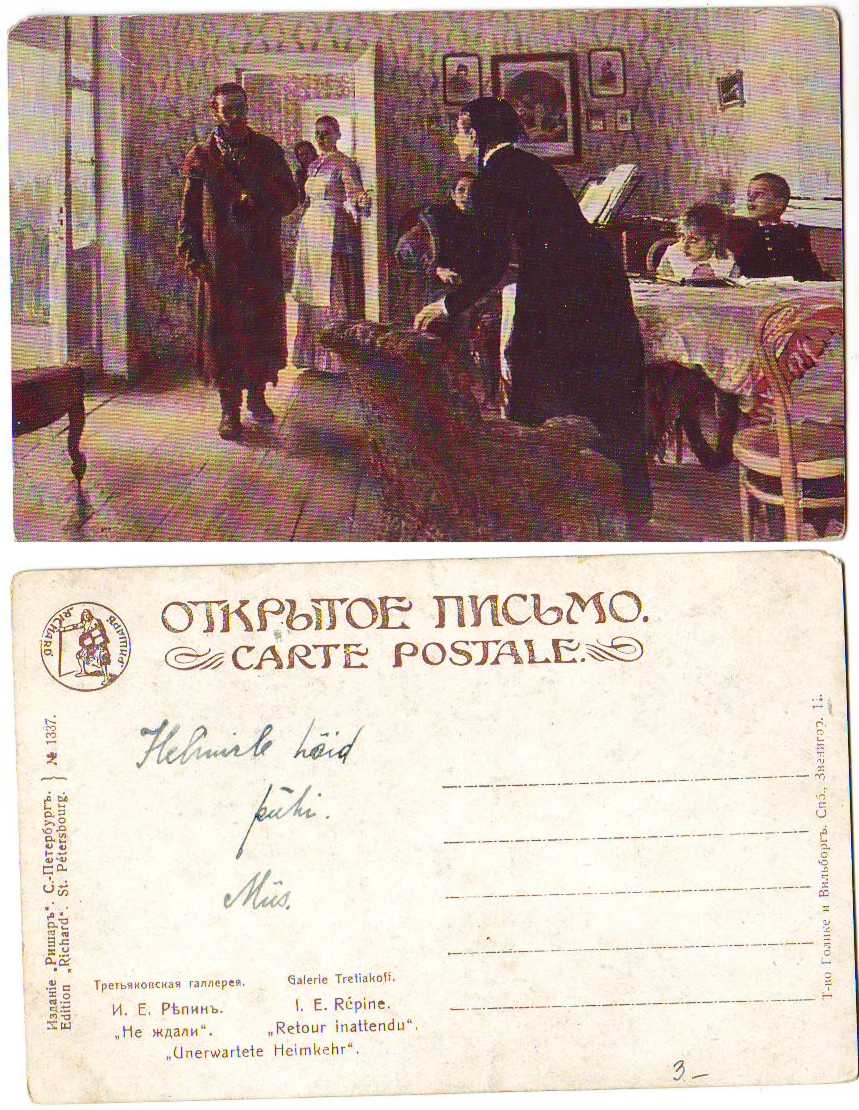 „РИШАРЪ“
„RICHARD“
ОТКРЫТОЕ ПИСЬМО.
CARTE POSTALE.
Изданіе „Ришаръ“. С.-Петербургъ.
Edition „Richard“. St. Pétersbourg.
№ 1337.
Helmile häid
pühi.
Miis.
Т-во Голике и Вильборгъ. Спб., Звенигор. 11.
Третьяковская галлерея.
И. Е. Рѣпинъ.
„Не ждали“.
Galerie Tretiakoff.
I. E. Répine.
„Retour inattendu“.
„Unerwartete Heimkehr“.
3.–